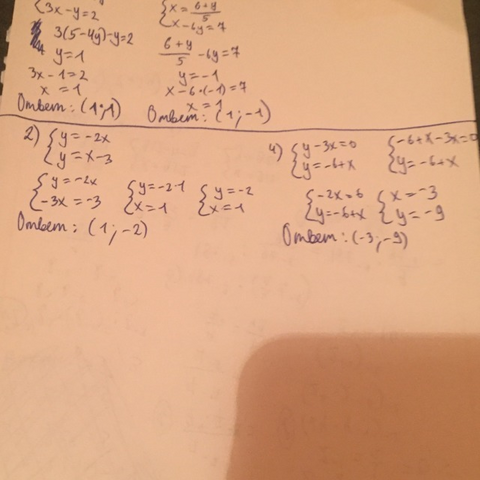 3x-y=2
3(5-4y)-y=2
y=1
3x-1=2
x=1
Ответ: (1;1)
x=\frac{6+y}{5}
x-6y=7
\frac{6+y}{5}-6y=7
y=-1
x-6·(-1)=7
x=1
Ответ: (1;-1)
2) {y=-2x
y=x-3
{y=-2x
-3x=-3
{y=-2·1
x=1
{y=-2
x=1
Ответ: (1;-2)
4) {y-3x=0
y=-6+x
{-6+x-3x=0
y=-6+x
{-2x=6
y=-6+x
{x=-3
y=-9
Ответ: (-3;-9)